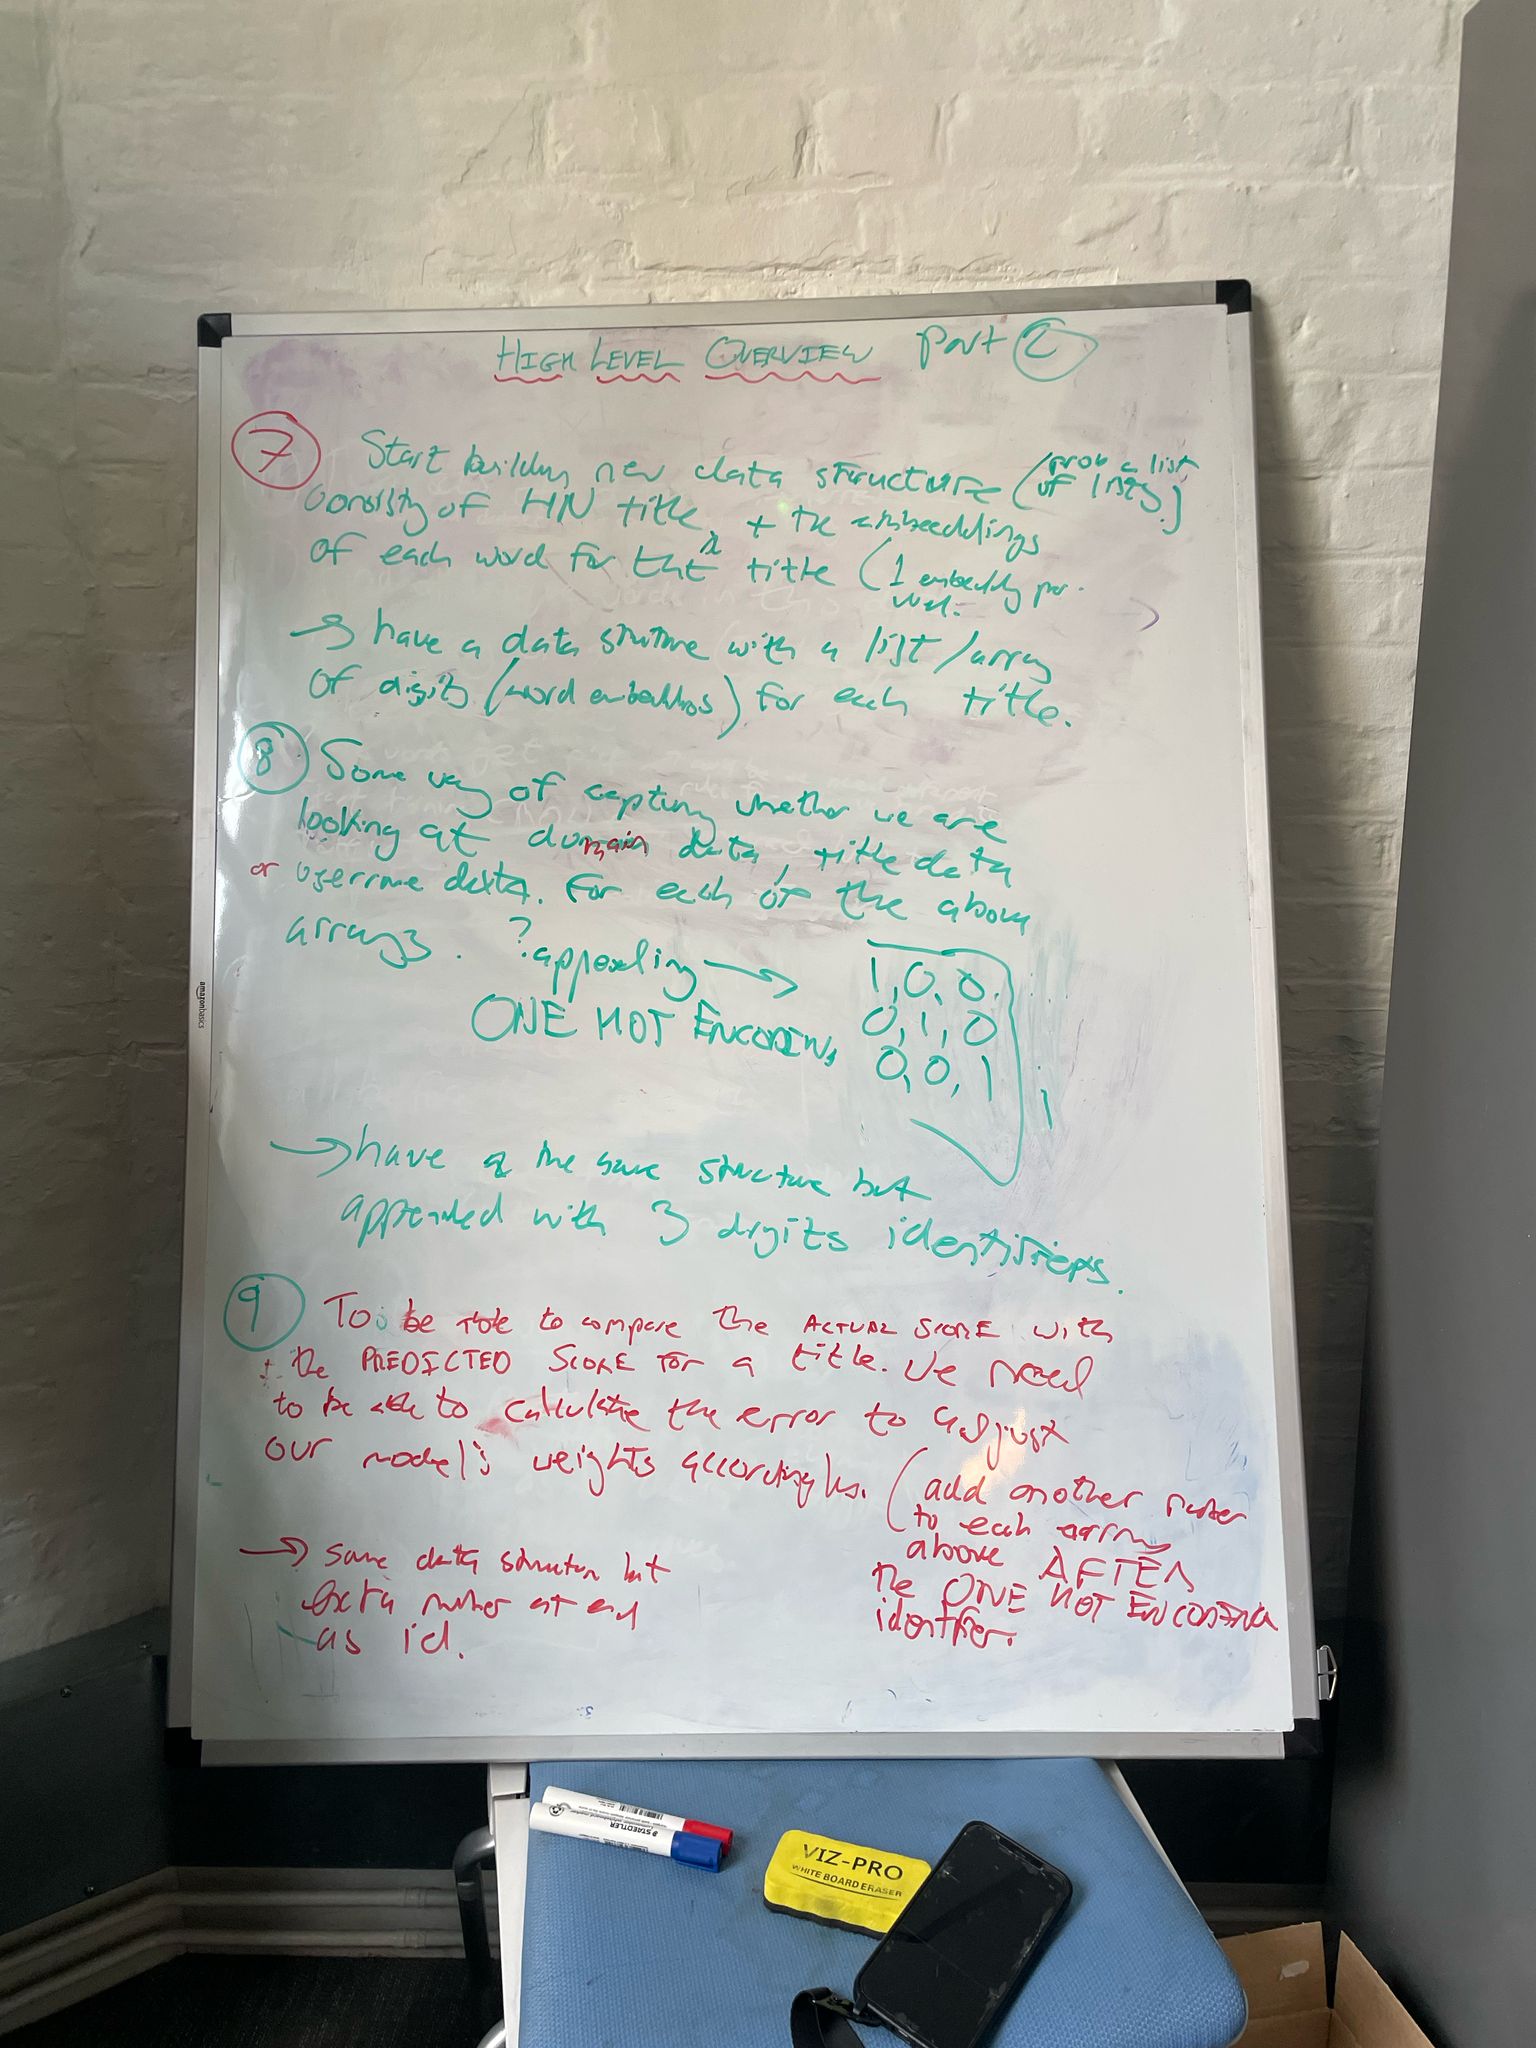 HIGH LEVEL OVERVIEW part 2
7 Start building new data structure (prob a list of lists)
consisty of HN title + the embeddings
of each word for that title (1 embeddy per
word.
→ have a data structure with a list/array
of digits (word embeddings) for each title.
8 Some way of capturing whether we are
looking at domain data, title data
or username data. For each of the above
arrays. ? appending →
ONE HOT ENCODING
1,0,0
0,1,0
0,0,1
→ have the same structure but
appended with 3 digits identifiers.
9 To be able to compare the ACTUAL SCORE with
the PREDICTED SCORE FOR a title. We need
to be able to calculate the error to adjust
our model's weights accordingly.
(add another number
to each array
above AFTER
the ONE HOT ENCODING
identifier.
→ same data structure but
extra number at end
as id.
amazonbasics
STAEDTLER
VIZ-PRO
WHITE BOARD ERASER